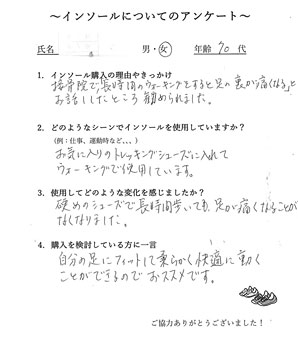 ～インソールについてのアンケート～
氏名 男・女 年齢 70 代
1. インソール購入の理由やきっかけ
接骨院で長時間のウォーキングをすると足の裏が痛くなると
お話ししたところ勧められました。
2. どのようなシーンでインソールを使用していますか？
(例：仕事、運動時など、、、)
お気に入りのトレッキングシューズに入れて
ウォーキングで使用しています。
3. 使用してどのような変化を感じましたか？
硬めのシューズで長時間歩いても、足が痛くなることが
なくなりました。
4. 購入を検討している方に一言
自分の足にフィットして柔らかく快適に動く
ことができるのでおススメです。
ご協力ありがとうございました！